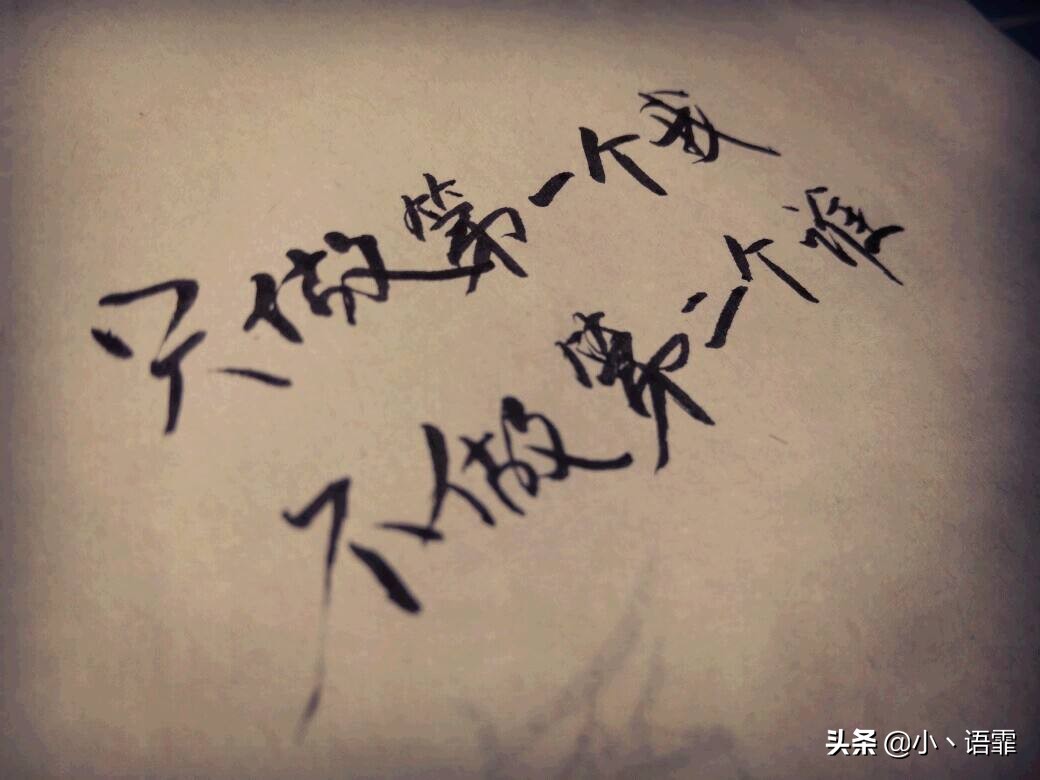 只做第一个我
不做第二个谁
头条 @小丶语霏